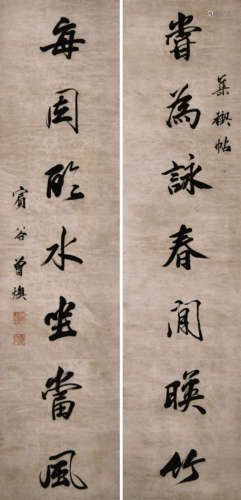 集禊帖
嘗為詠春閒暎竹
每因臨水坐當風
賓谷曾燠